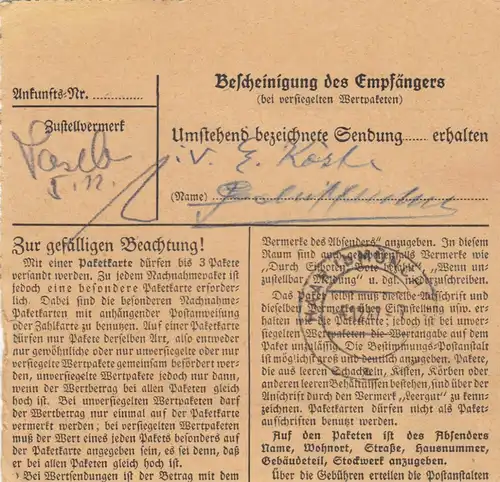 Ankunfts-Nr. ............
Zustellvermerk
Bescheinigung des Empfängers
(bei versiegelten Wertpaketen)
Umstehend bezeichnete Sendung...... erhalten
i. V. E.
(Name)
Zur gefälligen Beachtung!
Mit einer Paketkarte dürfen bis 3 Pakete
versandt werden. Zu jedem Nachnahmepaket ist
jedoch eine besondere Paketkarte erforder-
lich. Dabei sind die besonderen Nachnahme-
Paketkarten mit anhängender Postanweisung
oder Zahlkarte zu benutzen. Auf einer Paketkarte
dürfen nur Pakete derselben Art, also entweder
nur gewöhnliche oder nur unversiegelte oder nur
versiegelte Wertpakete gemeinsam befördert wer-
den, unversiegelte Wertpakete jedoch nur dann,
wenn der Wertbetrag bei allen Paketen gleich
hoch ist. Bei unversiegelten Wertpaketen darf
der Wertbetrag nur einmal auf der Paketkarte
vermerkt werden; bei versiegelten Wertpaketen
muß der Wert eines jeden Pakets besonders auf
der Paketkarte angegeben sein, es sei denn, daß
er bei allen Paketen gleich hoch ist.
Bei Wertsendungen ist der Betrag mit dem
Vermerke des Absenders" anzugeben. In diesem
Raum sind auch
"Durch Bote "Wenn un-
zustellbar u. dgl.
Das Paket selbst muß dieselbe Aufschrift und
dieselben Vermerke über Einstellung usw. er-
halten wie die Paketkarte; jedoch ist bei unver-
siegelten Wertpaketen die Wertangabe auf dem
Paket unzulässig. Die Bestimmungs-Postanstalt
ist möglichst groß und deutlich anzugeben. Pakete,
die aus leeren Schachteln, Kisten, Körben oder
anderen leeren Behältnissen bestehen, sind über der
Anschrift durch den Vermerk „Leergut" zu kenn-
zeichnen. Paketkarten dürfen nicht als Paket-
aufschriften benutzt werden.
Auf den Paketen ist des Absenders
Name, Wohnort, Straße, Hausnummer,
Gebäudeteil, Stockwerk anzugeben.
Über die Gebühren erteilen die Postanstalten